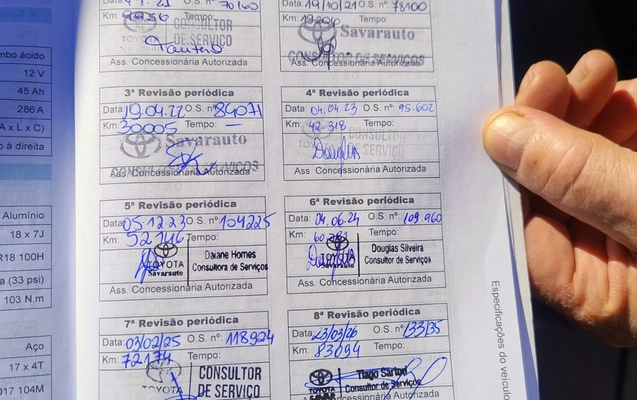 70160
Km: 9936 Tempo:
CONSULTOR
DE SERVIÇO
TOYOTA
Ass. Concessionária Autorizada
19/10/21 O.S. nº 78100
Km: Tempo:
Savarauto
CONSULTOR DE SERVIÇOS
Ass. Concessionária Autorizada
3ª Revisão periódica
Data: 19.04.22 O.S. nº 84071
Km: 30005 Tempo: —
TOYOTA Savarauto
CONSULTOR DE SERVIÇOS
Ass. Concessionária Autorizada
4ª Revisão periódica
Data: 04.04.23 O.S. nº 95.602
Km: 42-318 Tempo:
CONSULTOR
DE SERVIÇO
Douglas
Ass. Concessionária Autorizada
5ª Revisão periódica
Data: 05.12.23 O.S. nº 104225
Km: Tempo:
TOYOTA
Savarauto
Daiane Homes
Consultora de Serviços
Ass. Concessionária Autorizada
6ª Revisão periódica
Data: 04.06.24 O.S. nº 109.960
Km: Tempo:
TOYOTA
Savarauto
Douglas Silveira
Consultor de Serviços
Ass. Concessionária Autorizada
7ª Revisão periódica
Data: 03/02/25 O.S. nº 118924
Km: 72174 Tempo:
TOYOTA
CONSULTOR
DE SERVIÇO
8ª Revisão periódica
Data: 23/03/26 O.S. nº 133135
Km: 83094 Tempo:
TOYOTA
Tiago Sartori
Consultor de Serviços
ácido
12 V
45 Ah
286 A
A x L x C)
à direita
Alumínio
18 x 7J
R18 100H
(33 psi)
103 N.m
Aço
17 x 4T
104M
Especificações do veículo